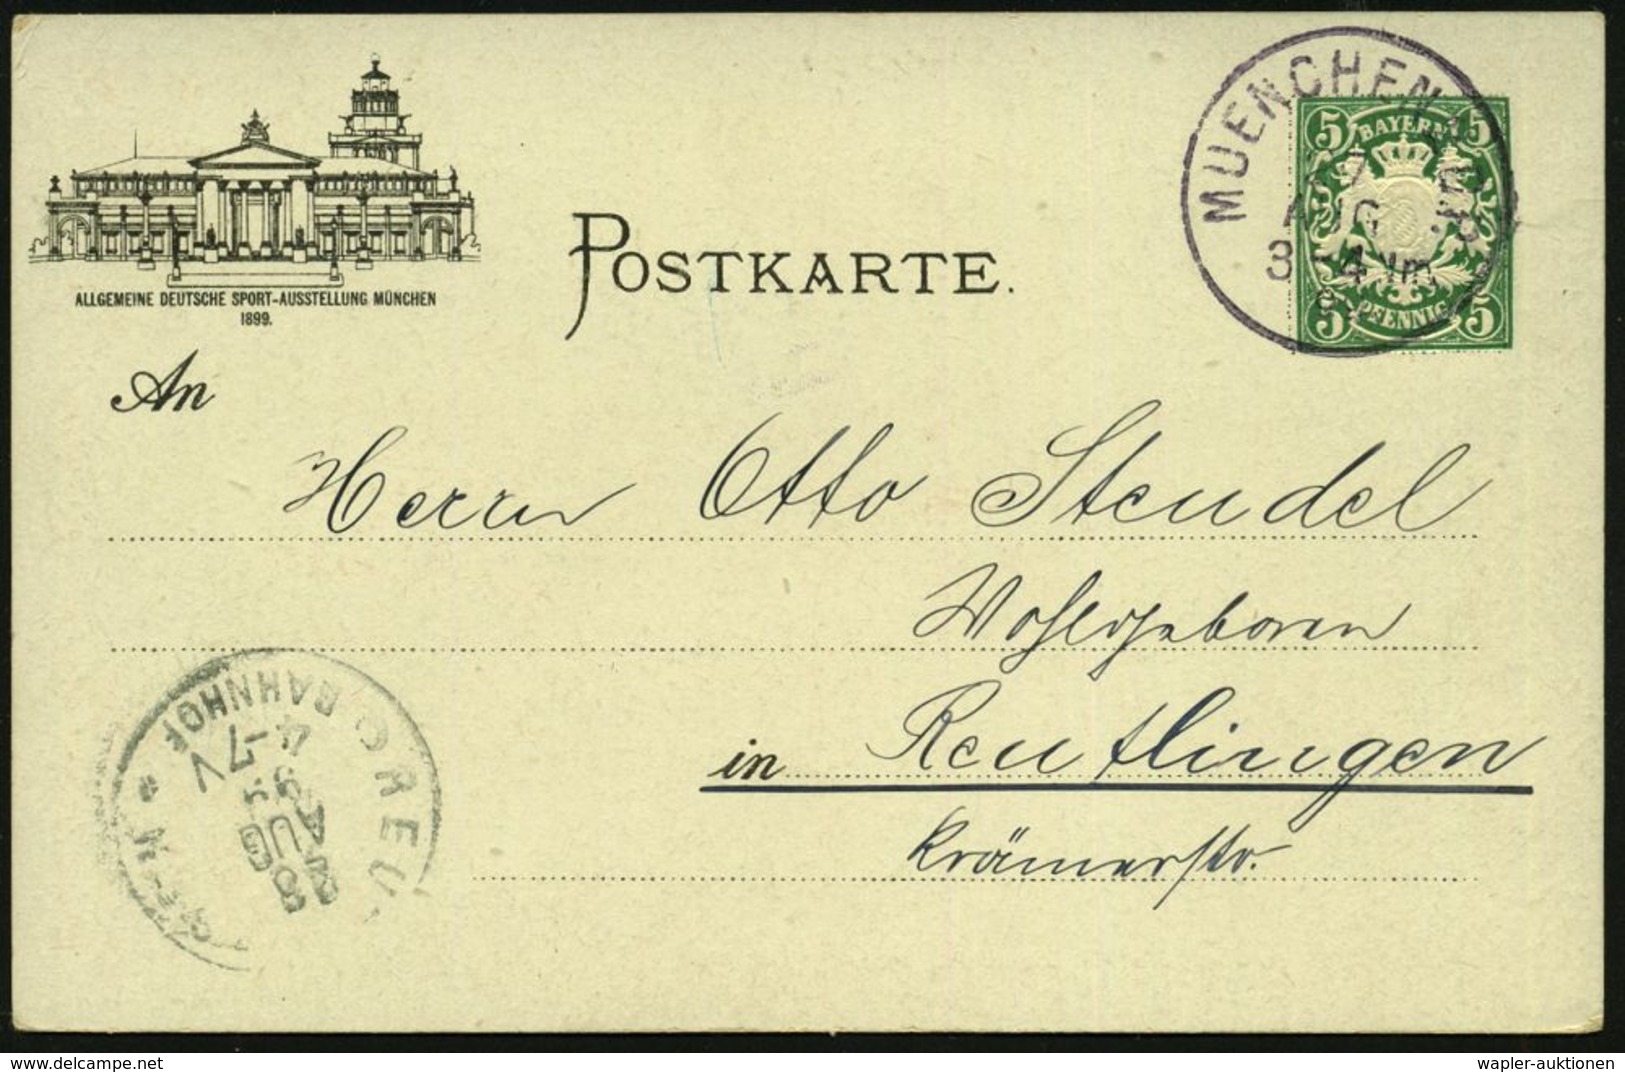 ALLGEMEINE DEUTSCHE SPORT-AUSSTELLUNG MÜNCHEN
1899.
POSTKARTE.
MUENCHEN
7
AUG
3-4 Nm
5 BAYERN 5
5 PFENNIG 5
An
Herrn Otto Steudel
Wohlgeboren
in Reutlingen
Krämerstr.
BAHNHOF
4-7 V
AUG
8
wapler-auktionen
www.delcampe.net
wapler-auktionen